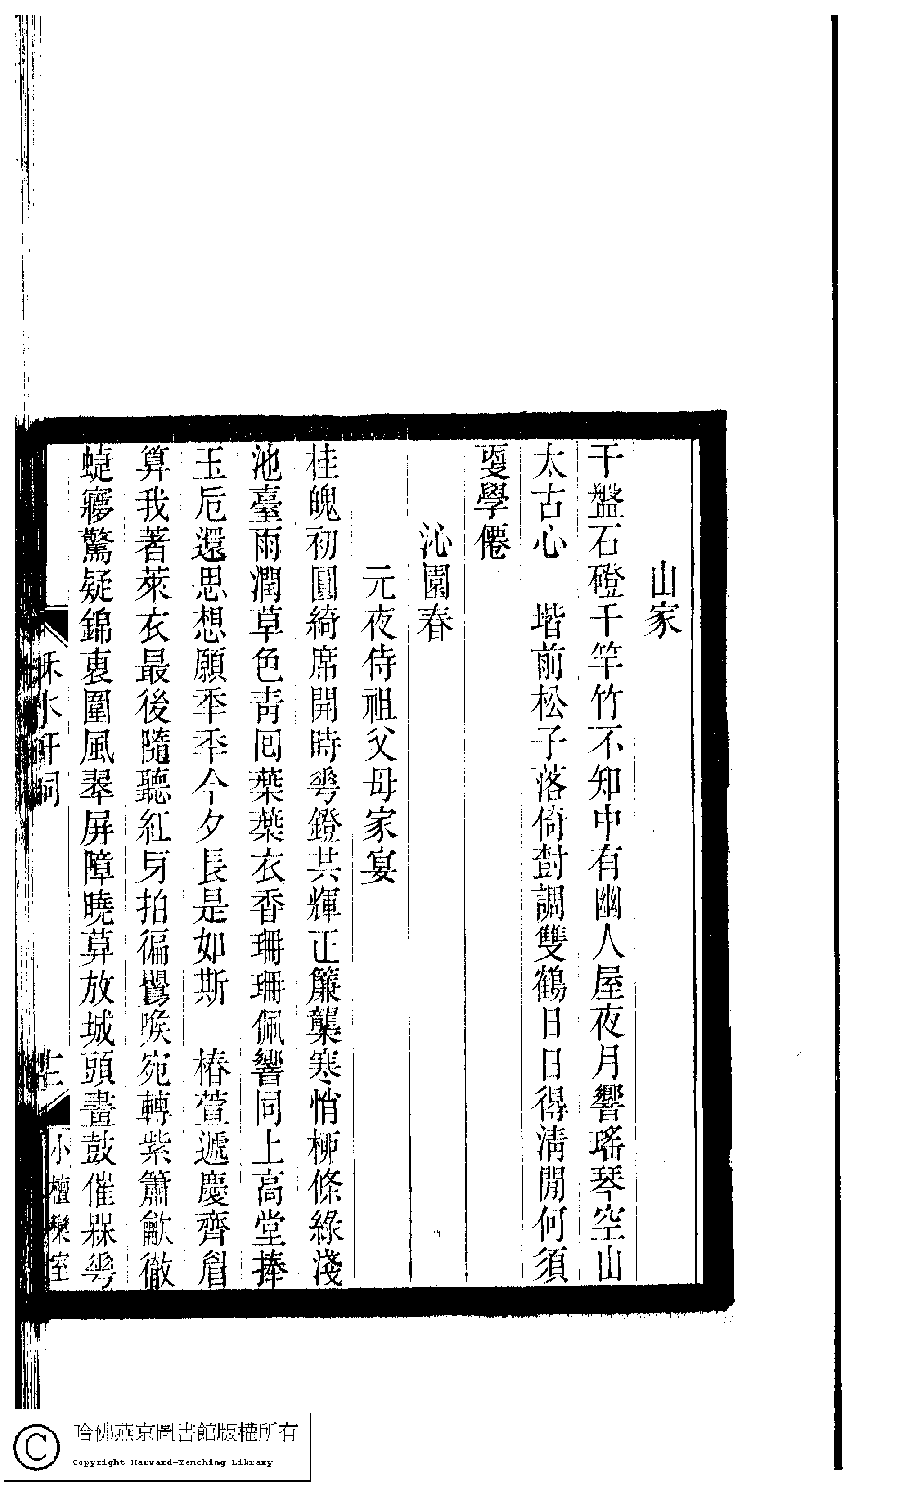 山家
千盤石磴千竿竹不知中有幽人屋夜月響瑤琴空山
太古心　堦前松子落倚尌調雙鶴日日得淸閒何須
㪅學僊
沁園春
元夜侍祖父母家宴
桂魄初圓綺席開時𠌶鐙共輝正簾襲寒悄柳條綠淺
池臺雨潤草色靑回葉葉衣香珊珊佩響同上高堂捧
玉卮還思想願秊秊今夕長是如斯　椿萱遞慶齊睂
算我著萊衣最後隨聽紅牙拍徧鸎喉宛轉紫簫龡徹
蜨㝱驚疑錦裏圍風翠屏障曉莫放城頭畫鼓催槑𠌶
水軒詞
小檀欒室
哈佛燕京圖書館版權所有
Copyright Harvard-Yenching Library